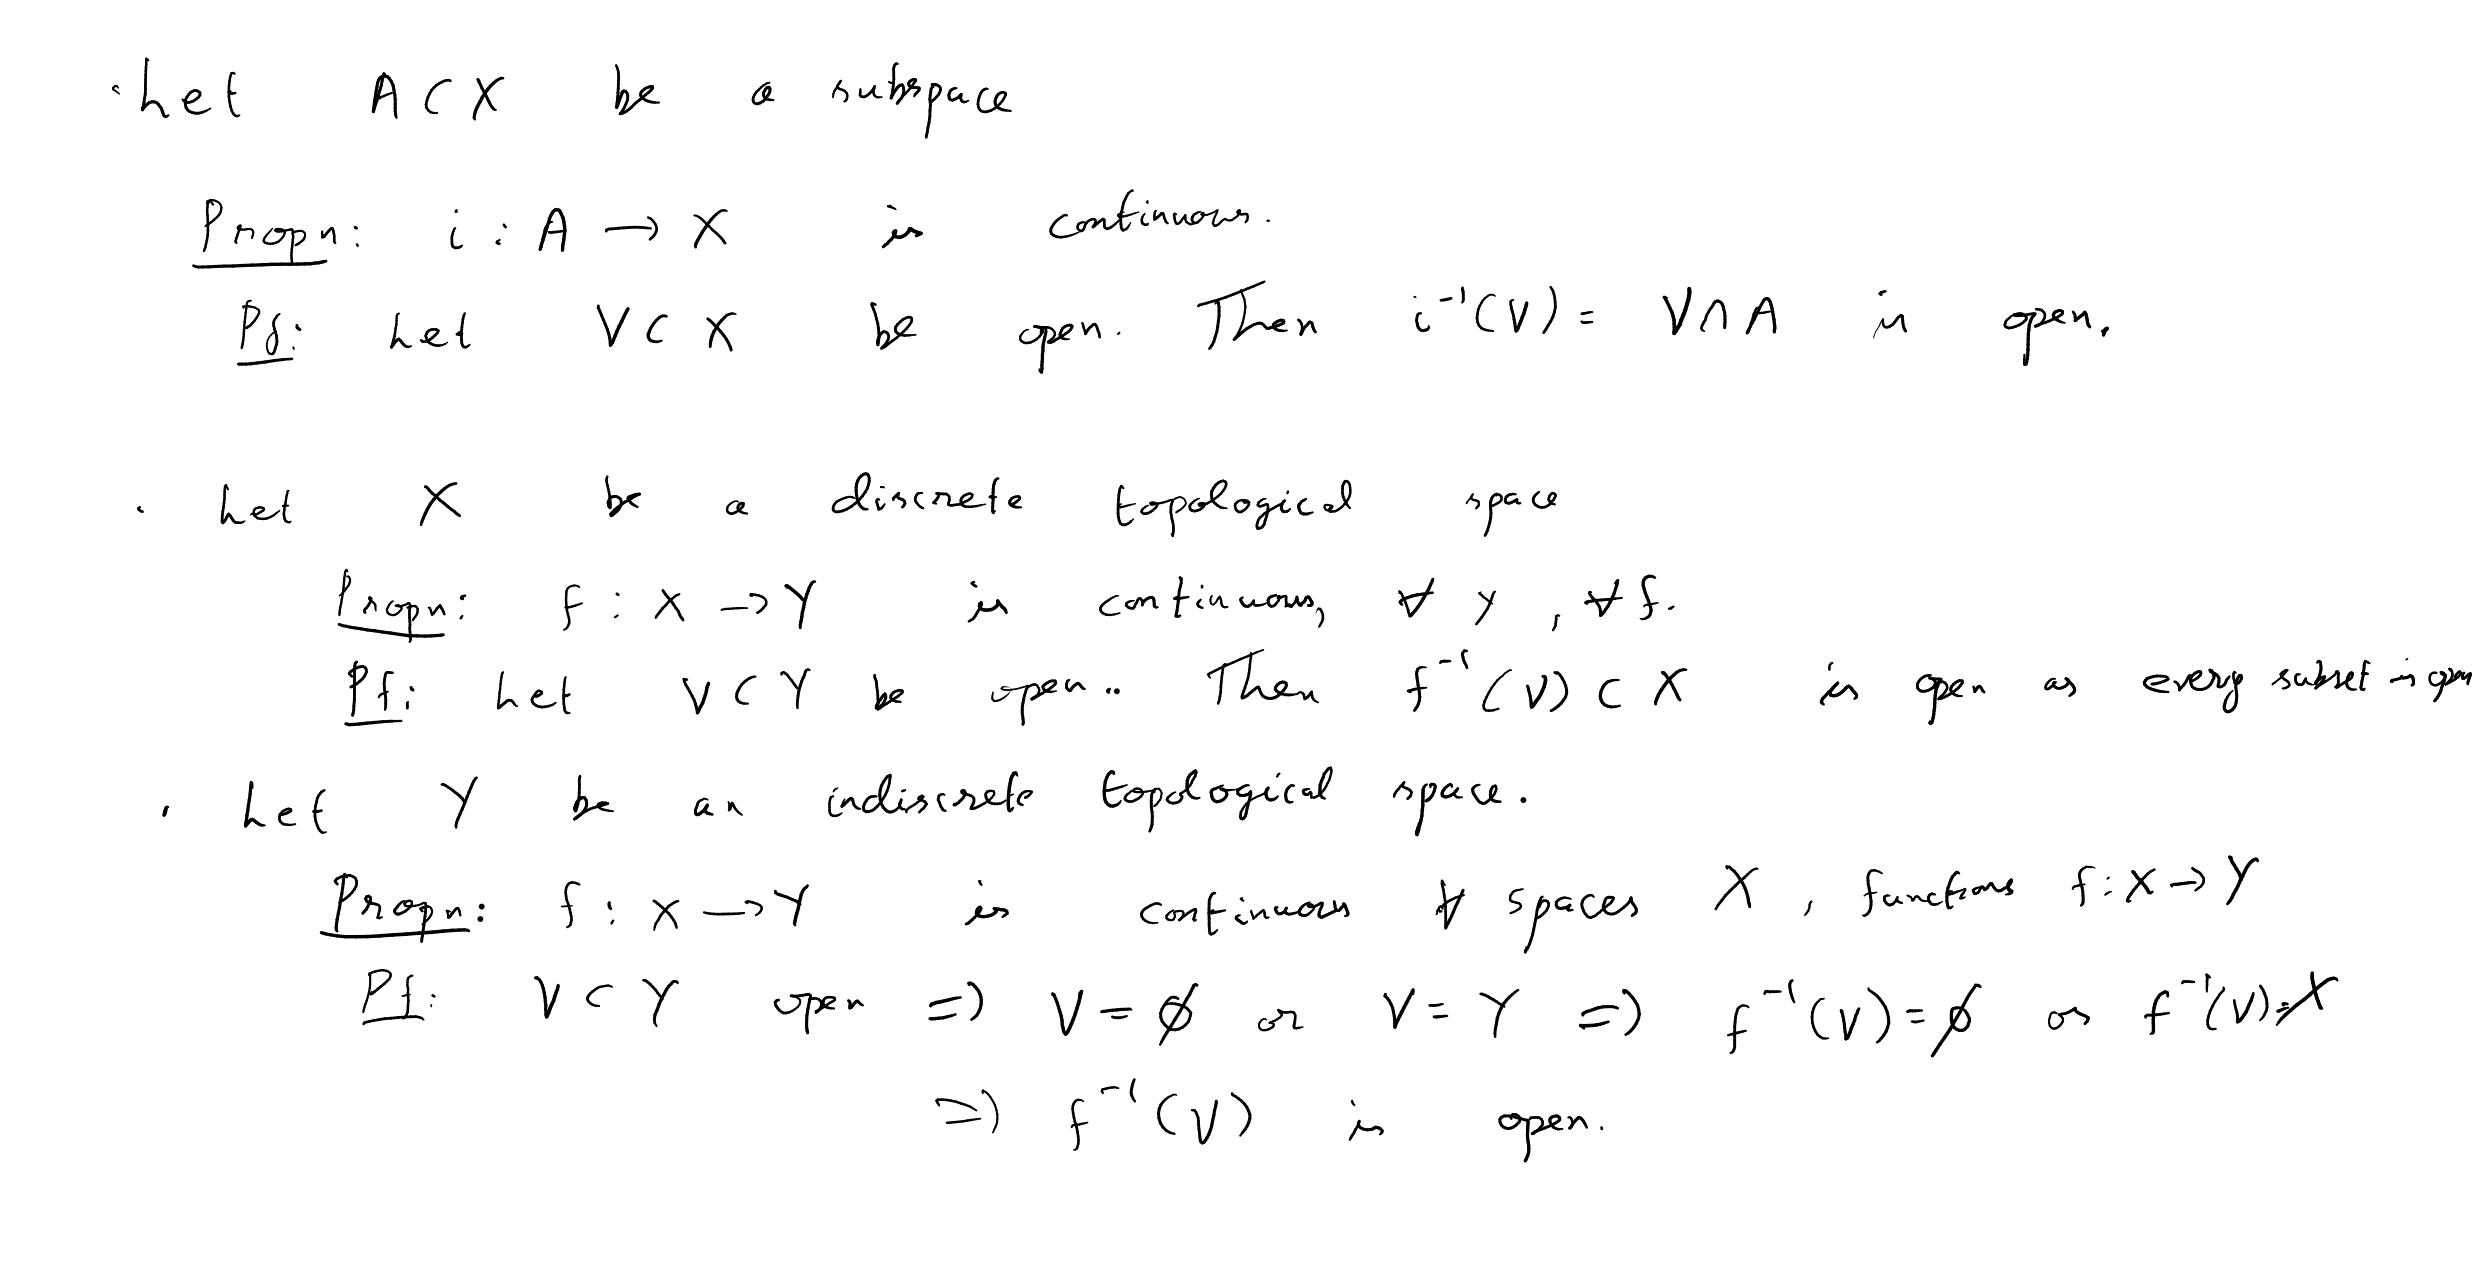 · Let A ⊂ X be a subspace
Propn: i : A → X is continuous.
Pf: Let V ⊂ X be open. Then i⁻¹(V) = V ∩ A is open.
· Let X be a discrete topological space
Propn: f : X → Y is continuous, ∀ Y, ∀ f.
Pf: Let V ⊂ Y be open.. Then f⁻¹(V) ⊂ X is open as every subset is open
· Let Y be an indiscrete topological space.
Propn: f : X → Y is continuous ∀ spaces X, functions f : X → Y
Pf: V ⊂ Y open ⇒ V = ∅ or V = Y ⇒ f⁻¹(V) = ∅ or f⁻¹(V) = X
⇒ f⁻¹(V) is open.